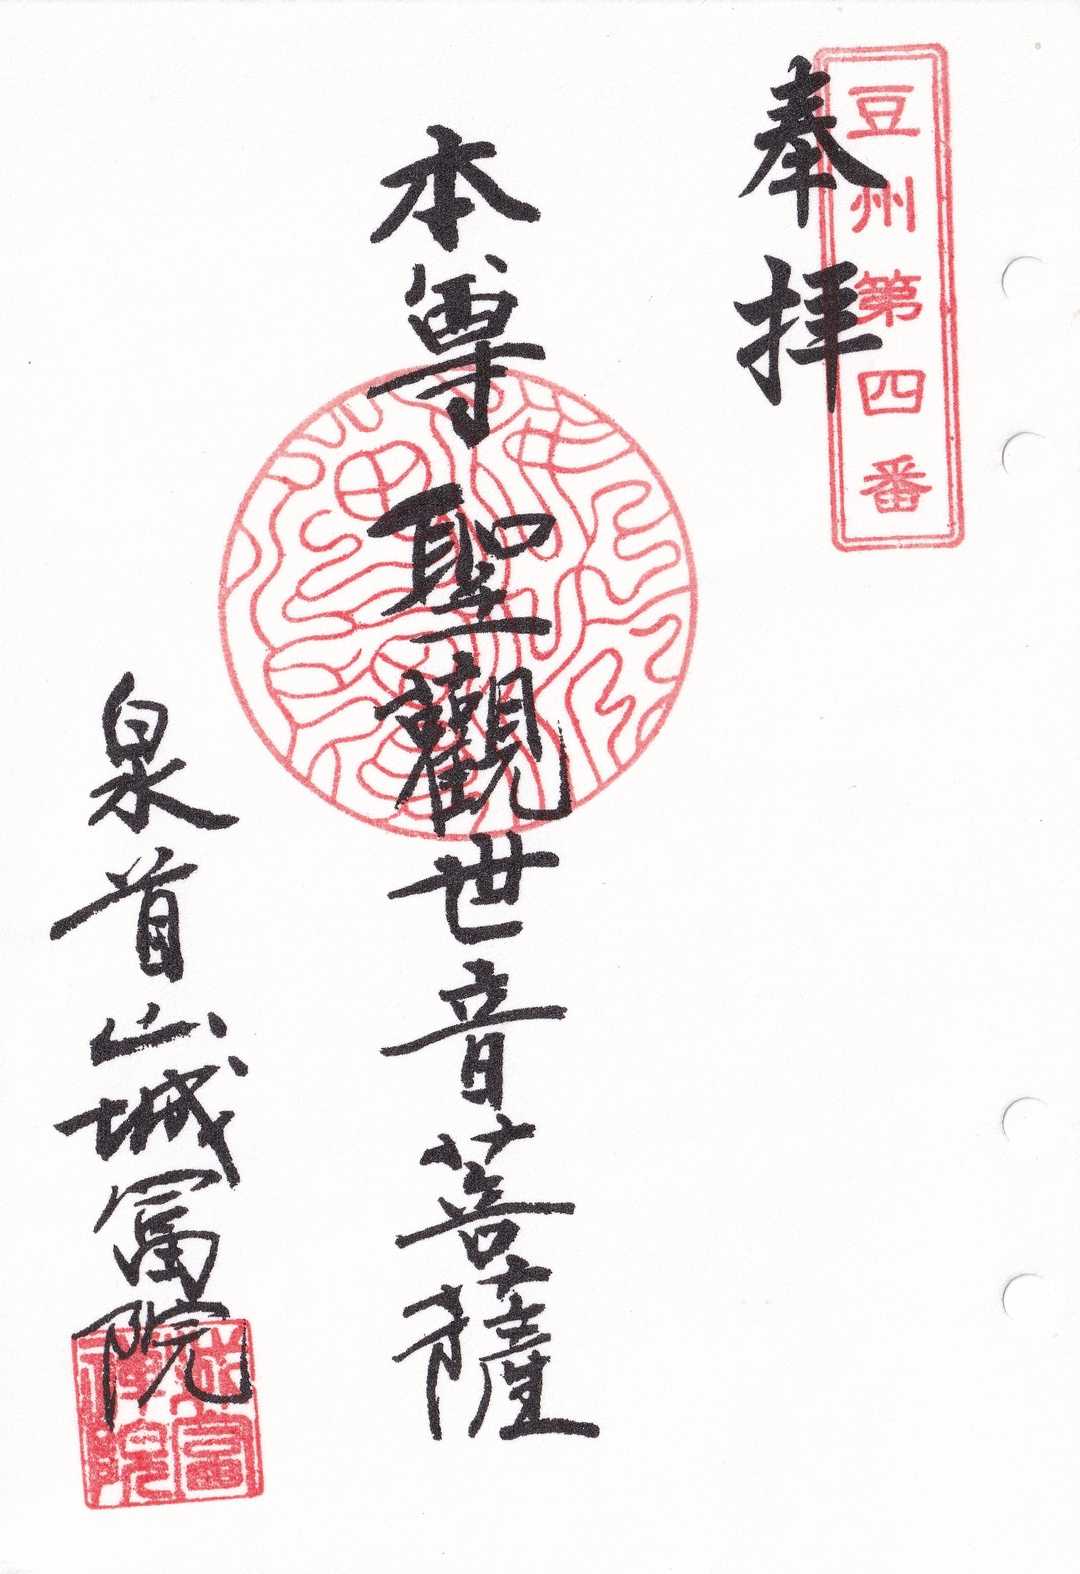 豆州第四番
奉拝
本尊聖觀世音菩薩
泉首山城富院
城富
禅院